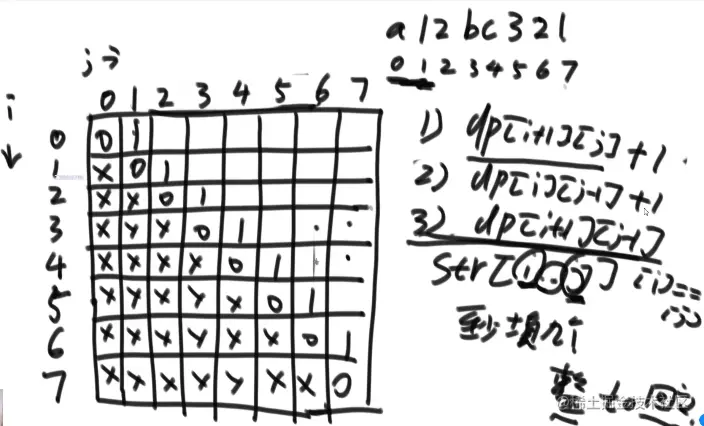 a 1 2 b c 3 2 1
0 1 2 3 4 5 6 7
j→
0 1 2 3 4 5 6 7
i
0 0 1
1 x 0 1
2 x x 0 1
3 x x x 0 1
4 x x x x 0 1
5 x x x x x 0 1
6 x x x x x x 0 1
7 x x x x x x x 0
1) dp[i+1][j]+1
2) dp[i][j-1]+1
3) dp[i+1][j-1]
str[i...j] [i]==
[j]
至少填几个
整体回文
@稀土掘金技术社区